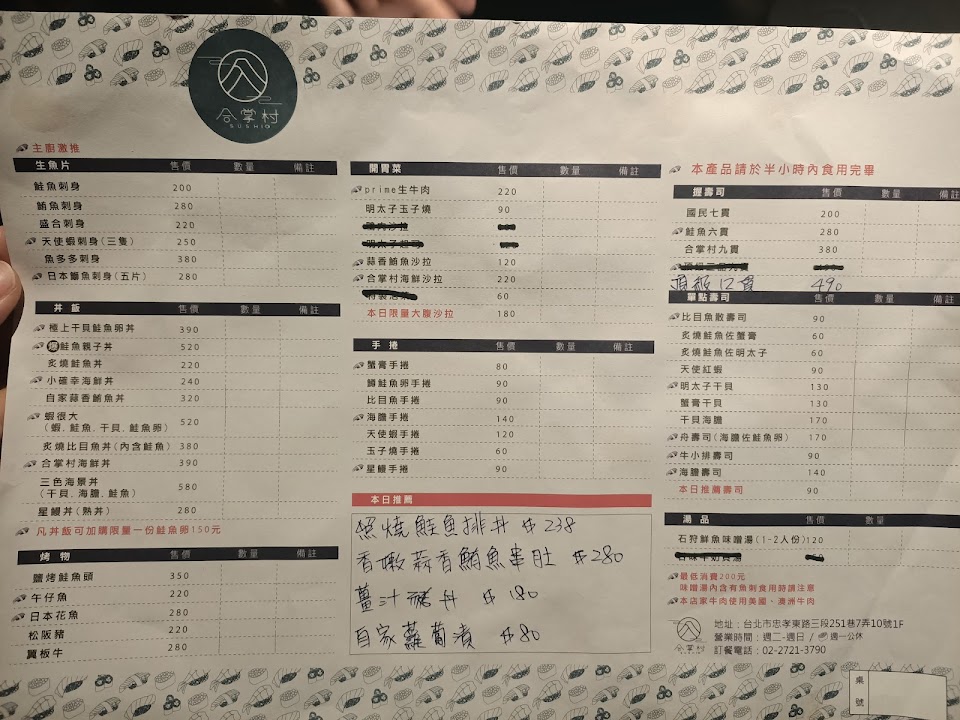 合掌村
SUSHIO
主廚激推
生魚片 售價 數量 備註
鮭魚刺身 200
鮪魚刺身 280
盛合刺身 220
天使蝦刺身(三隻) 250
魚多多刺身 380
日本鰤魚刺身(五片) 280
丼飯 售價 數量 備註
極上干貝鮭魚卵丼 390
鮭魚親子丼 520
炙燒鮭魚丼 220
小確幸海鮮丼 240
自家蒜香鮪魚丼 320
蝦很大
(蝦.魷魚.干貝.鮭魚卵) 520
炙燒比目魚丼(內含鮭魚) 380
合掌村海鮮丼 390
三色海景丼
(干貝.海膽.鮭魚) 580
星鰻丼(熟丼) 280
凡丼飯可加購限量一份鮭魚卵150元
烤物 售價 數量 備註
鹽烤鮭魚頭 350
午仔魚 220
日本花魚 280
松阪豬 220
翼板牛 280
開胃菜 售價 數量 備註
prime生牛肉 220
明太子玉子燒 90
蒜香鮪魚沙拉 120
合掌村海鮮沙拉 220
60
本日限量大腹沙拉 180
手捲 售價 數量 備註
蟹膏手捲 80
鱒鮭魚卵手捲 90
比目魚手捲 90
海膽手捲 140
天使蝦手捲 120
玉子燒手捲 60
星鰻手捲 90
本日推薦
照燒鮭魚排丼 $238
香嫩蒜香鮪魚串肚 $280
薑汁豬丼 $180
自家蘿蔔漬 $80
本產品請於半小時內食用完畢
握壽司 售價 數量 備註
國民七貫 200
鮭魚六貫 280
合掌村九貫 380
頂級口貫 490
單點壽司 售價 數量 備註
比目魚散壽司 90
炙燒鮭魚佐蟹膏 60
炙燒鮭魚佐明太子 60
天使紅蝦 90
明太子干貝 130
蟹膏干貝 130
干貝海膽 170
舟壽司(海膽佐鮭魚卵) 170
牛小排壽司 90
海膽壽司 140
本日推薦壽司 90
湯品 售價 數量
石狩鮮魚味噌湯(1-2人份) 120
最低消費200元
味噌湯內含有魚刺食用時請注意
本店家牛肉使用美國、澳洲牛肉
合掌村
地址:台北市忠孝東路三段251巷7弄10號1F
營業時間:週二-週日 / 週一公休
訂餐電話:02-2721-3790
桌號